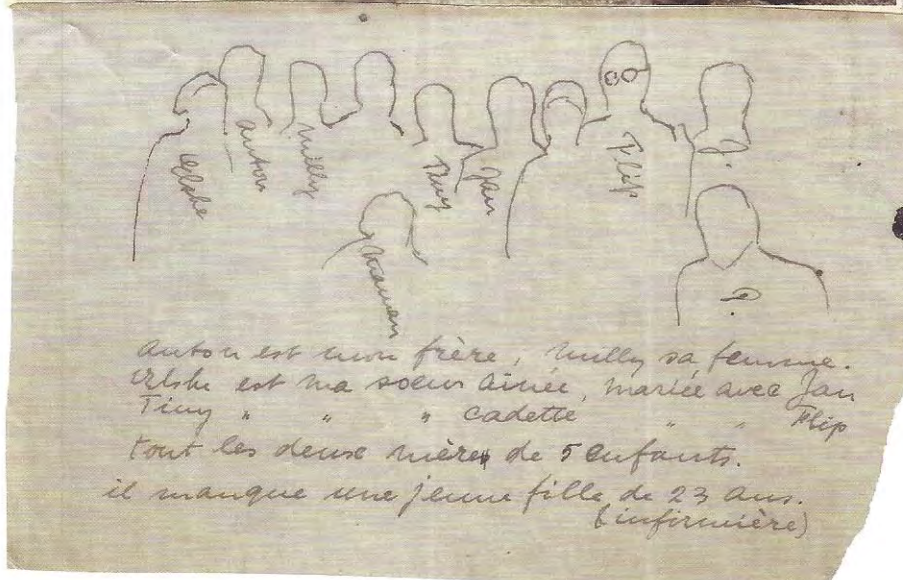 Elske
Anton
Milly
Tiny
Jan
Flip
J.
Maman
Anton est mon frère, Milly sa femme.
Elske est ma soeur ainée, mariée avec Jan
Tiny " " " cadette " " Flip
tout les deux mères de 5 enfants.
il manque une jeune fille de 23 ans.
(infirmière)